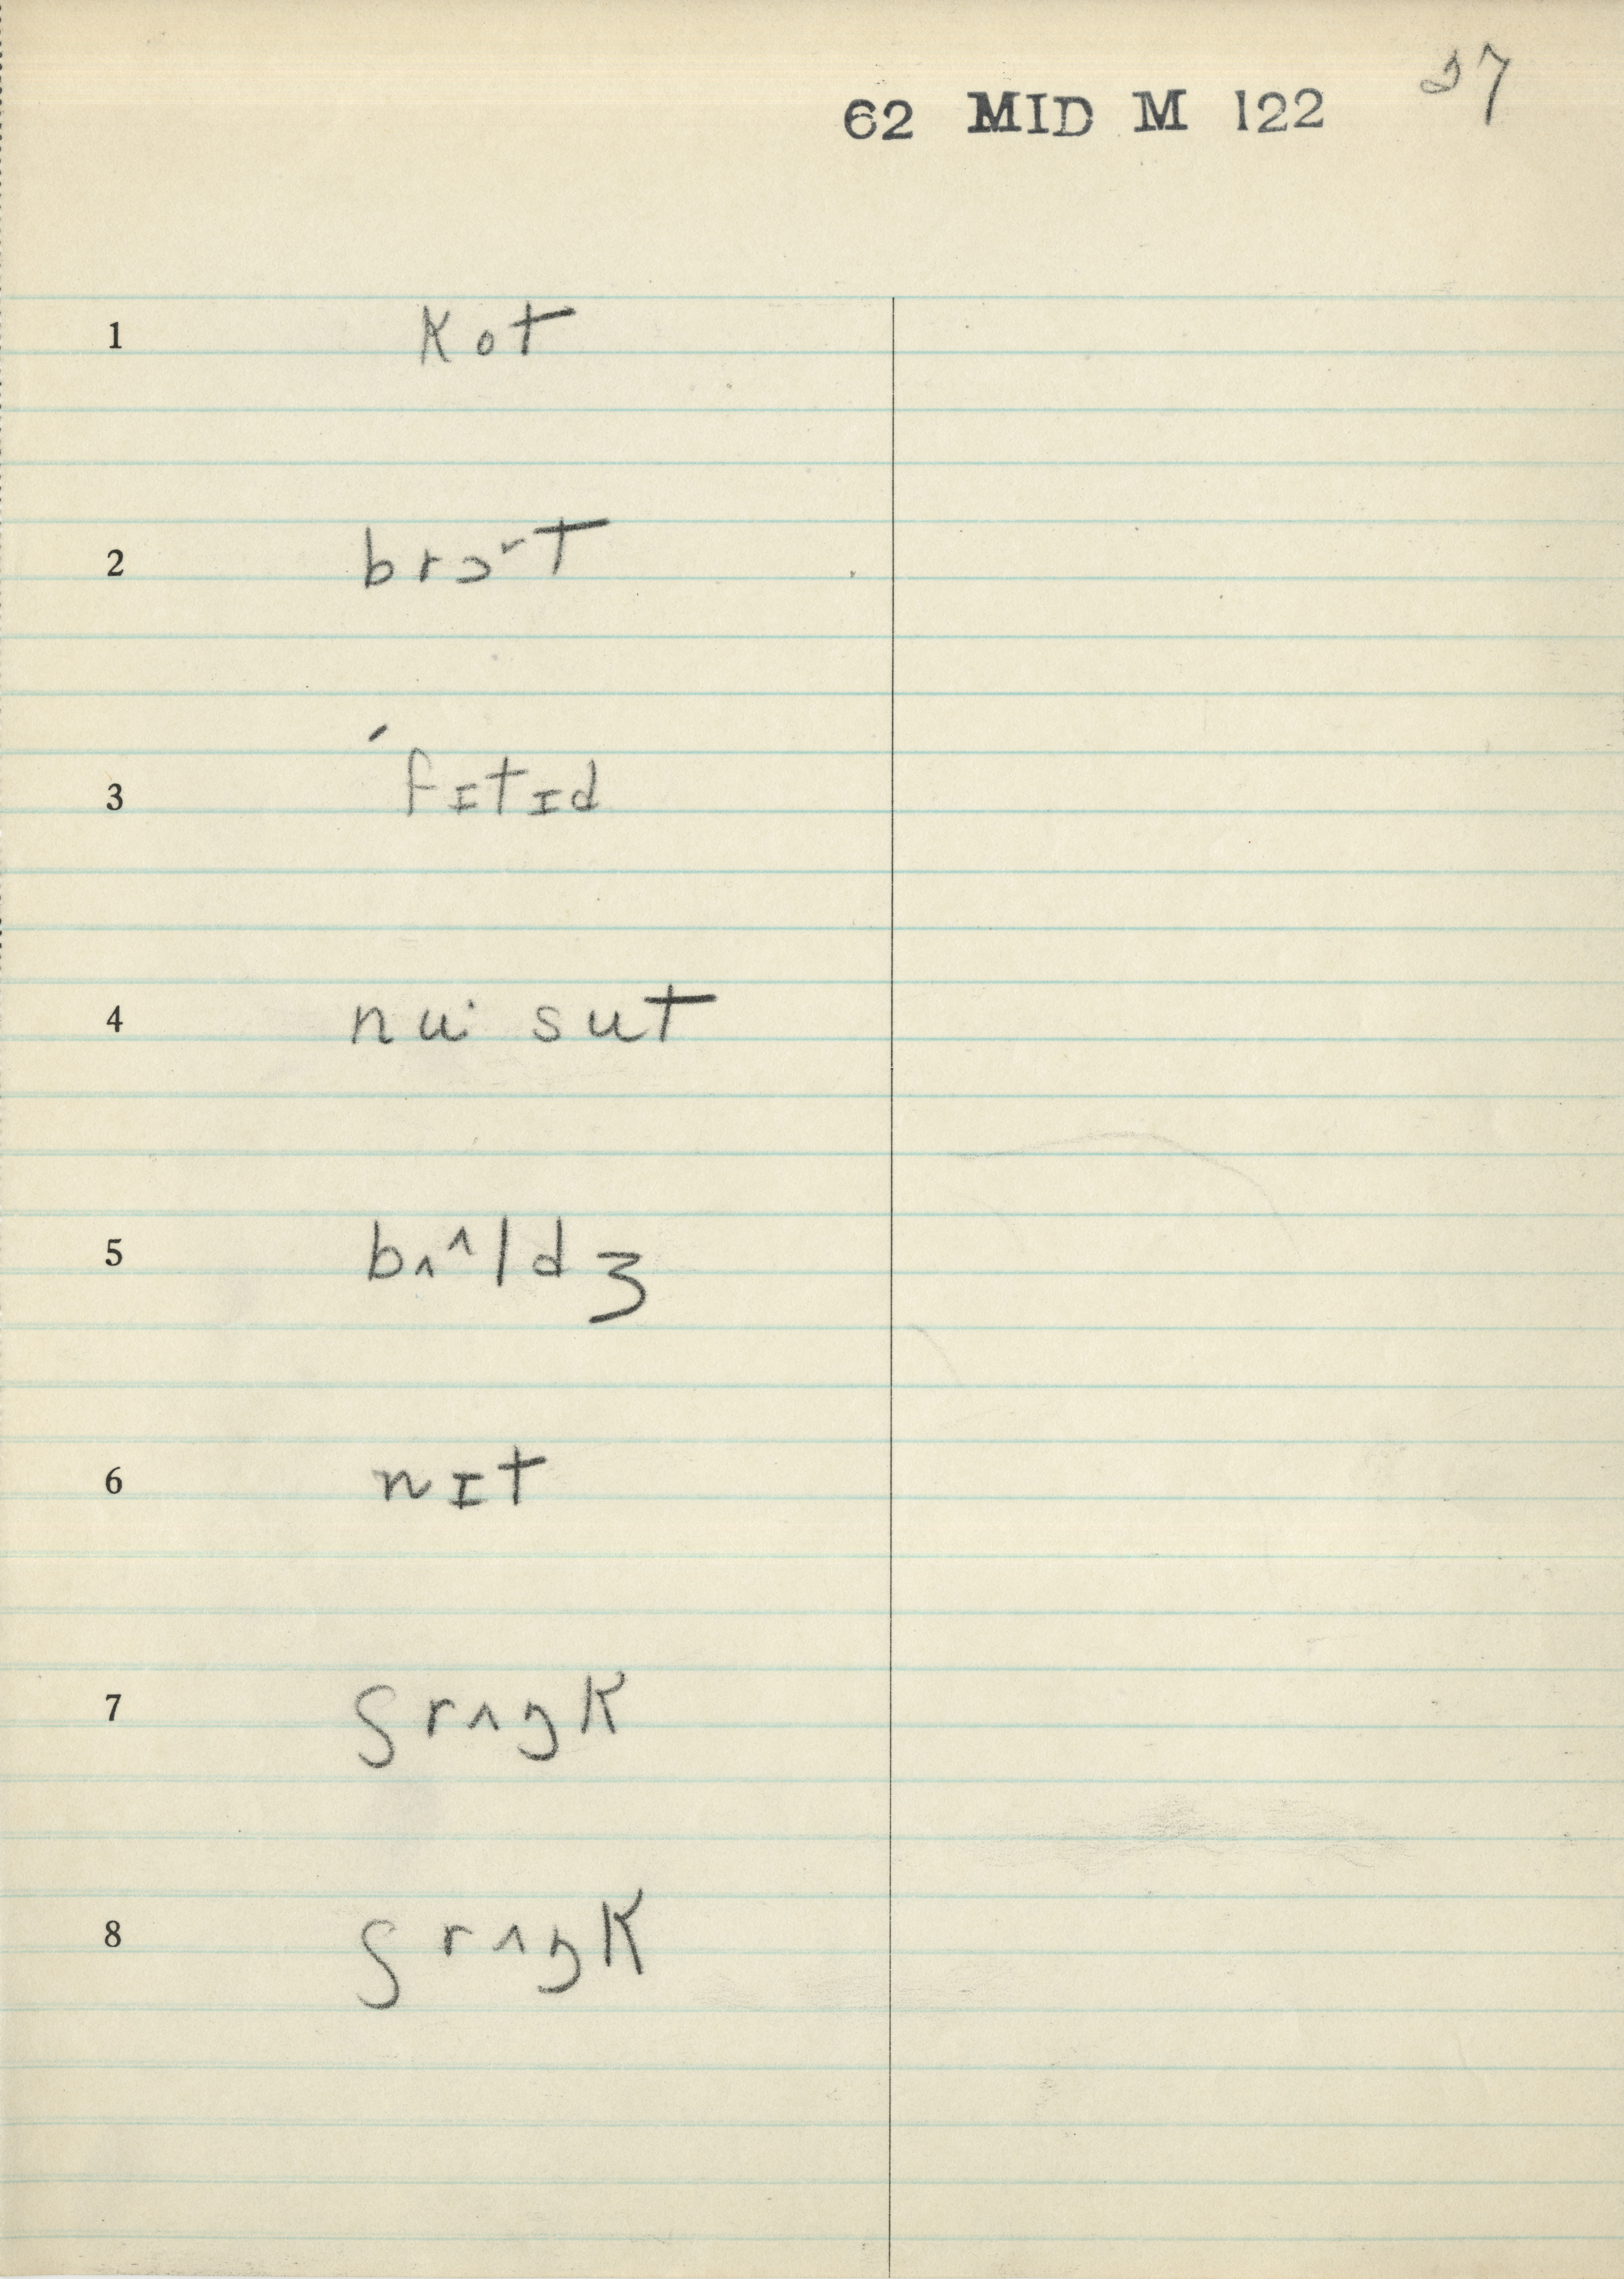 62 MID M 122 37
1 kot
2 brɔɤt
3 ´fɪtɪd
4 nu· sut
5 bʌ^ldʒ
6 nɪt
7 ʃrʌŋk
8 ʃrʌŋk